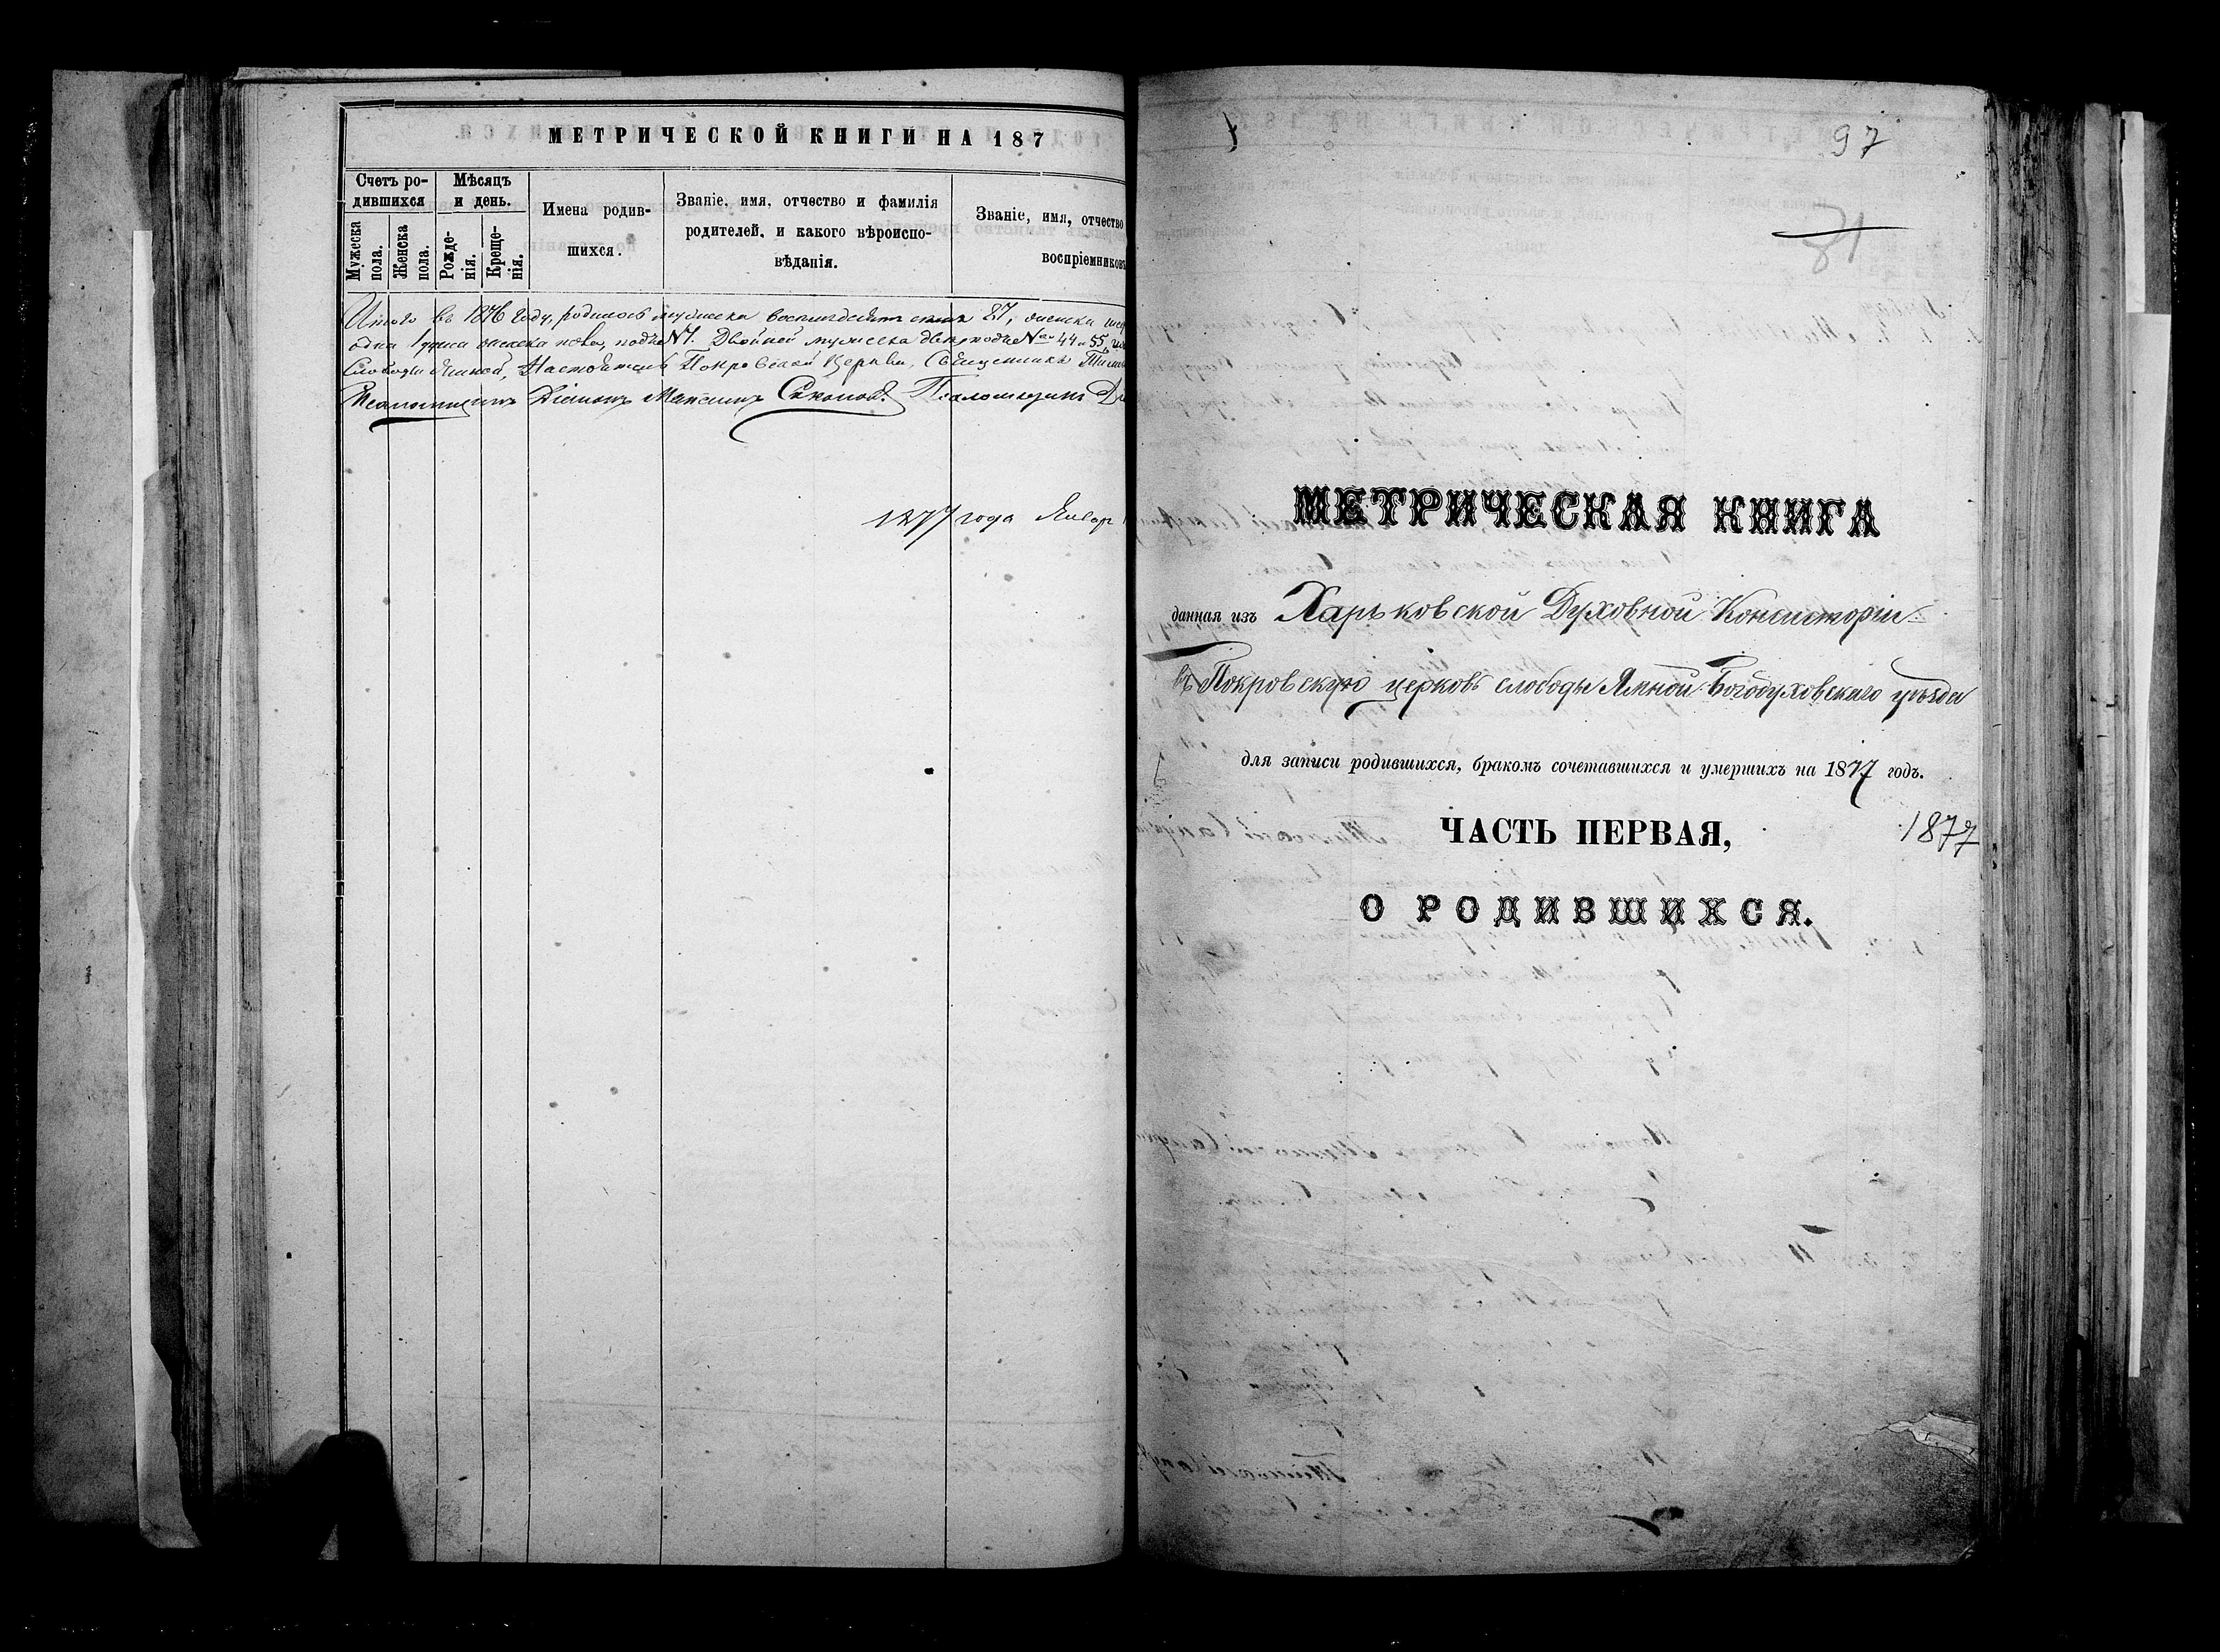 МЕТРИЧЕСКОЙ КНИГИ НА 187
Счетъ ро-
дившихся
Мужеска
пола.
Женска
пола.
Мѣсяцъ
и день.
Рожде-
нія.
Креще-
нія.
Имена родив-
шихся.
Званіе, имя, отчество и фамилія
родителей, и какого вѣроиспо-
вѣданія.
Званіе, имя, отчество
воспріемниковъ
Итого въ 1876 году, родилось мужеска восемьдесятъ 87, женска
одна 1 женска пола, подъ №1. Двойней мужеска два подъ №№ 44 и 55,
Слободы Ямной, Настоятель Покровской Церкви, Священникъ
Псаломщикъ Діаконъ Максимъ Псаломщикъ
1877 года Январ
97
81
МЕТРИЧЕСКАЯ КНИГА
данная изъ Харьковской Духовной Консисторіи
въ Покровскую церковь слободы Ямной Богодуховскаго уѣзда
для записи родившихся, бракомъ сочетавшихся и умершихъ на 1877 годъ.
ЧАСТЬ ПЕРВАЯ,
1877
О РОДИВШИХСЯ.